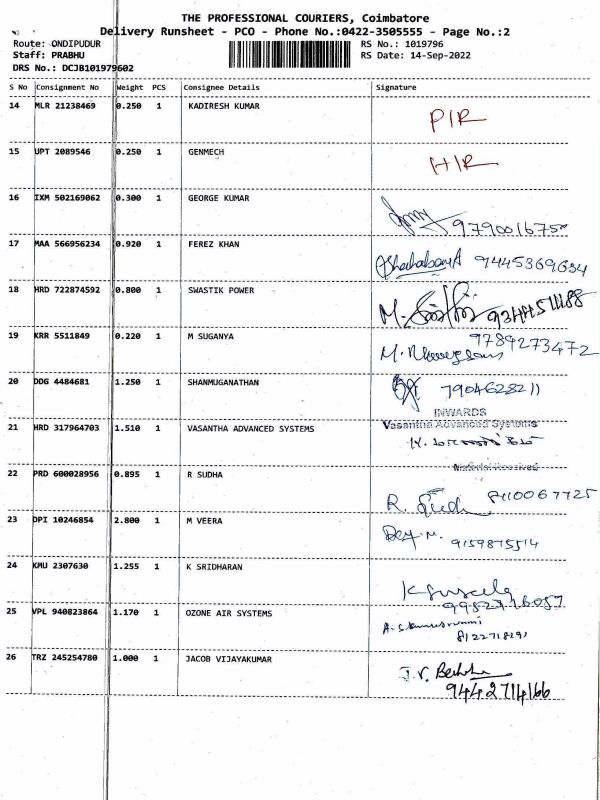 THE PROFESSIONAL COURIERS, Coimbatore
Delivery Runsheet - PCO - Phone No.:0422-3505555 - Page No.:2
Route: ONDIPUDUR RS No.: 1019796
Staff: PRABHU RS Date: 14-Sep-2022
DRS No.: DCJB101979602
S No Consignment No Weight PCS Consignee Details Signature
14 MLR 21238469 0.250 1 KADIRESH KUMAR
P/R
15 UPT 2089546 0.250 1 GENMECH
H/R
16 IXM 502169062 0.300 1 GEORGE KUMAR
17 MAA 566956234 0.920 1 FEREZ KHAN
9445369634
18 HRD 722874592 0.800 1 SWASTIK POWER
M.
19 KRR 5511849 0.220 1 M SUGANYA
9789273472
M.
20 DDG 4484681 1.250 1 SHANMUGANATHAN
7904628211
INWARDS
21 HRD 317964703 1.510 1 VASANTHA ADVANCED SYSTEMS
Vasantha Advanced Systems
Material Received
22 PRD 600028956 0.895 1 R SUDHA
R. 8110067725
23 DPI 10246854 2.800 1 M VEERA
9159875514
24 KMU 2307630 1.255 1 K SRIDHARAN
25 VPL 940823864 1.170 1 OZONE AIR SYSTEMS
26 TRZ 245254780 1.000 1 JACOB VIJAYAKUMAR
J.V.
9442714166